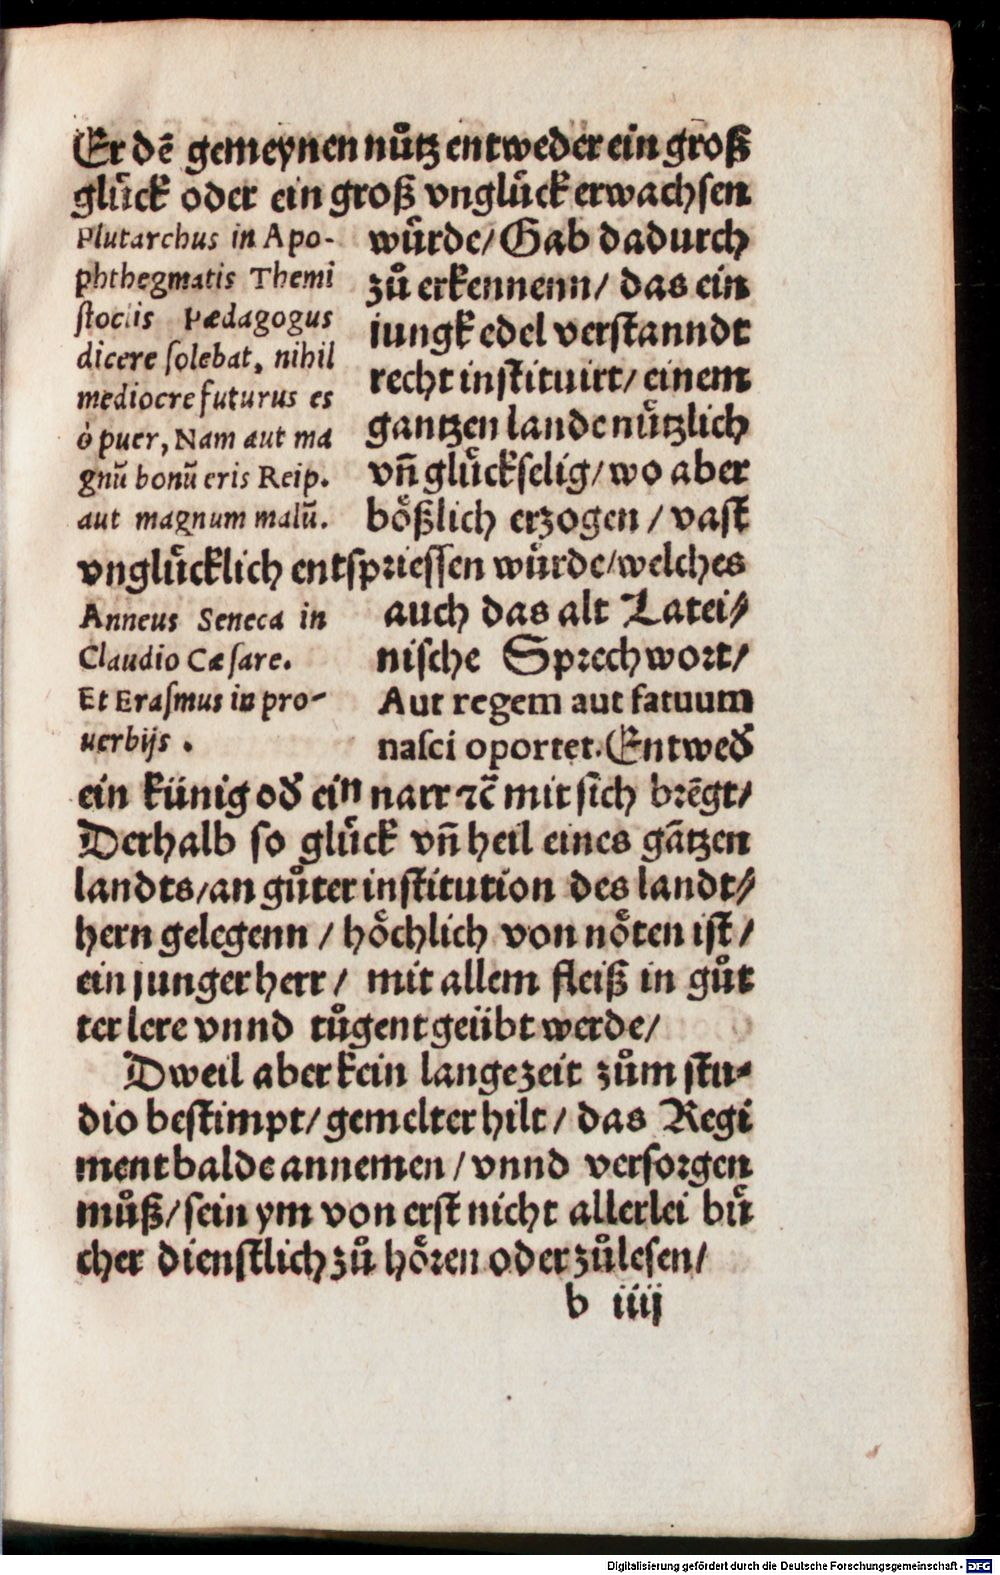 Er dē gemeynen nůtz entweder ein groß
glück oder ein groß vnglück erwachsen
Plutarchus in Apo-
phthegmatis Themi
stoclis Pædagogus
dicere solebat, nihil
mediocre futurus es
ò puer, Nam aut ma
gnū bonū eris Reip.
aut magnum malū.
würde/ Gab dadurch
zů erkennenn/ das ein
jungk edel verstanndt
recht instituirt/ einem
gantzen lande nützlich
vñ glückselig/ wo aber
bößlich erzogen / vast
vnglücklich entspriessen würde/welches
Anneus Seneca in
Claudio Cæsare.
Et Erasmus in pro-
uerbijs .
auch das alt Latei⸗
nische Sprechwort/
Aut regem aut fatuum
nasci oportet. Entwed̕
ein künig od̕ ein narr ⁊c̄ mit sich brēgt/
Derhalb so glück vñ heil eines gātzen
landts/an gůter institution des landt⸗
hern gelegenn / höchlich von nöten ist/
ein junger herr/ mit allem fleiß in gůt
ter lere vnnd tůgent geübt werde/
Dweil aber kein lange zeit zům stu⸗
dio bestimpt/ gemelter hilt/ das Regi
ment balde annemen / vnnd versorgen
můß/ sein ym von erst nicht allerlei bü
cher dienstlich zů hören oder zůlesen/
b iiij
Digitalisierung gefördert durch die Deutsche Forschungsgemeinschaft - DFG